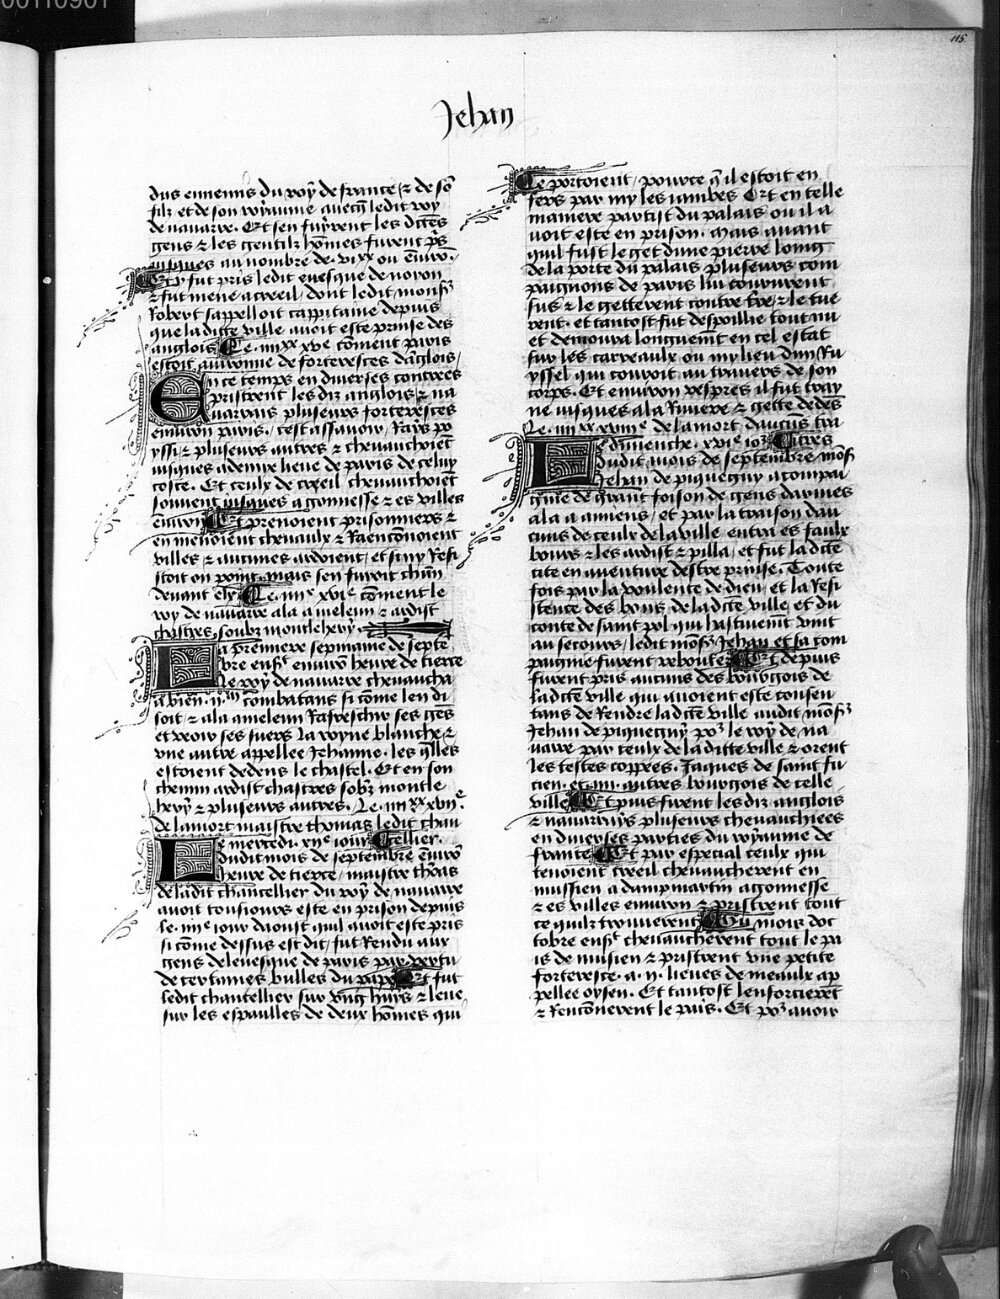 00110901
115
Jehan
dus ennemis du roy de france ⁊ de sō
filz et de son royaume avecq̄ ledit roy
de navarre. Et sen fuyrent les dittēs
gens ⁊ les gentilz hōmes furent pˢ
jusques au nombre de. vixx ou ēviro.
Et y fut pris ledit evesque de noyon
⁊ fut mene a creeil / dont ledit monsʳ
Robert sappelloit cappitaine depuis
que laditte ville avoit este prinse des
anglois Ce. iiiixx xve cōment paris
estoit avironne de forteresces danglois /
En ce temps en diverses contrees
pristrent lesdiz anglois ⁊ na
varrais pluseurs forteresces
environ paris / cest assavoir / Pays po
yssi ⁊ pluseurs autres ⁊ chevauchoiēt
jusques a demie lieue de paris de celuy
coste. Et ceulz de creeil chevauchoiēt
souvent jusques a gonnesse ⁊ es villes
environ Et prenoient prisonniers ⁊
en menoient chevaulx ⁊ raenconnoient
villes ⁊ aucunes ardoient / et si ny resi
stoit on point. mais sen fuyoit chūn
devant eulx Ce. iiiixx xvie cōment le
roy de navarre ala a meleun ⁊ ardist
chastres soubz montlehery
La premiere sepmaine de septē
bre ensᵗ environ heure de tierce
le roy de navarre chevaucha
a bien. ii.m combatans si cōme len di
soit ⁊ ala a meleun rafreschir ses gēs
et veoir ses suers la royne blanche ⁊
une autre appellee Jehanne. les q̄lles
estoient dedens le chastel. Et en son
chemin ardist chastres sobz montle
hery ⁊ pluseurs autres. Le. iiiixx xviie
de la mort maistre thomas ledit chan
Le mercredi. xiie jour Cellier.
dudit mois de septembre ēviro
heure de tierce / maistre thōas
de ladit chancellier du roy de navarre
avoit tousjours este en prison depuis
le. iiie jour daoust quil avoit este pris
si cōme dessus est dit / fut rendu aux
gens de levesque de paris par vertu
de certaines bulles du pape Et fut
ledit chancellier sur ung huys ⁊ leve
sur les espaulles de deux hōmes qui
Le portoient / pource q̄ il estoit en
fers par my les jambes Et en telle
maniere partist du palais ou il a
voit este en prison. Mais avant
quil fust le get dune pierre loing
de la porte du palais pluseurs com
paignons de paris lui coururent
sus ⁊ le getterent contre tre / ⁊ le tue
rent. et tantost fut despoillie tout nu
et demoura longuemt en cel estat
sur les carreaulx ou mylieu dun ru
yssel qui couroit au travers de son
corps. Et environ vespres il fut tray
ne jusques a la riviere ⁊ gette dedēs
Le. iiiixx xviiie de la mort daucūs tra
Le dimenche. xvie jor Citres
dudit mois de septembre monsʳ
Jehan de piquegny acompai
gnie de grant foison de gens darmes
ala a amiens / et par la traison dau
cuns de ceulx de la ville / entra es faulx
bours ⁊ les ardist ⁊ pilla / et fut la dicte
cite en aventure destre prinse. Toute
fois par la voulente de dieu / et la resi
stence des bons de la dcte ville et du
conte de saint pol qui hastivement vint
au secours / ledit monsʳ Jehan et sa com
paignie furent reboutez Et depuis
furent pris aucuns des bourgois de
ladcte ville qui avoient este consen
tans de rendre ladcte ville audit monsʳ
Jehan de piquegny poʳ le roy de na
varre par ceulx de laditte ville ⁊ orent
les testes coppees. Jaques de saint fu
cien. et. iiii. autres bourgois de celle
ville Et puis firent lesdiz anglois
⁊ navarrays pluseurs chevauchiees
en diverses parties du royaume de
france Et par especial ceulx qui
tenoient creeil chevaucherent en
mussien a dampmartin a gonnesse
⁊ es villes environ ⁊ pristrent tout
ce quilz trouverent Ou mois doc
tobre ensᵗ chevaucherent tout le pa
is de musien ⁊ pristrent une petite
forteresce. a. ii. lieues de meaulx ap
pellee oysen. Et tantost lenforcierēt
⁊ renconnerent le pais. Et poʳ avoir